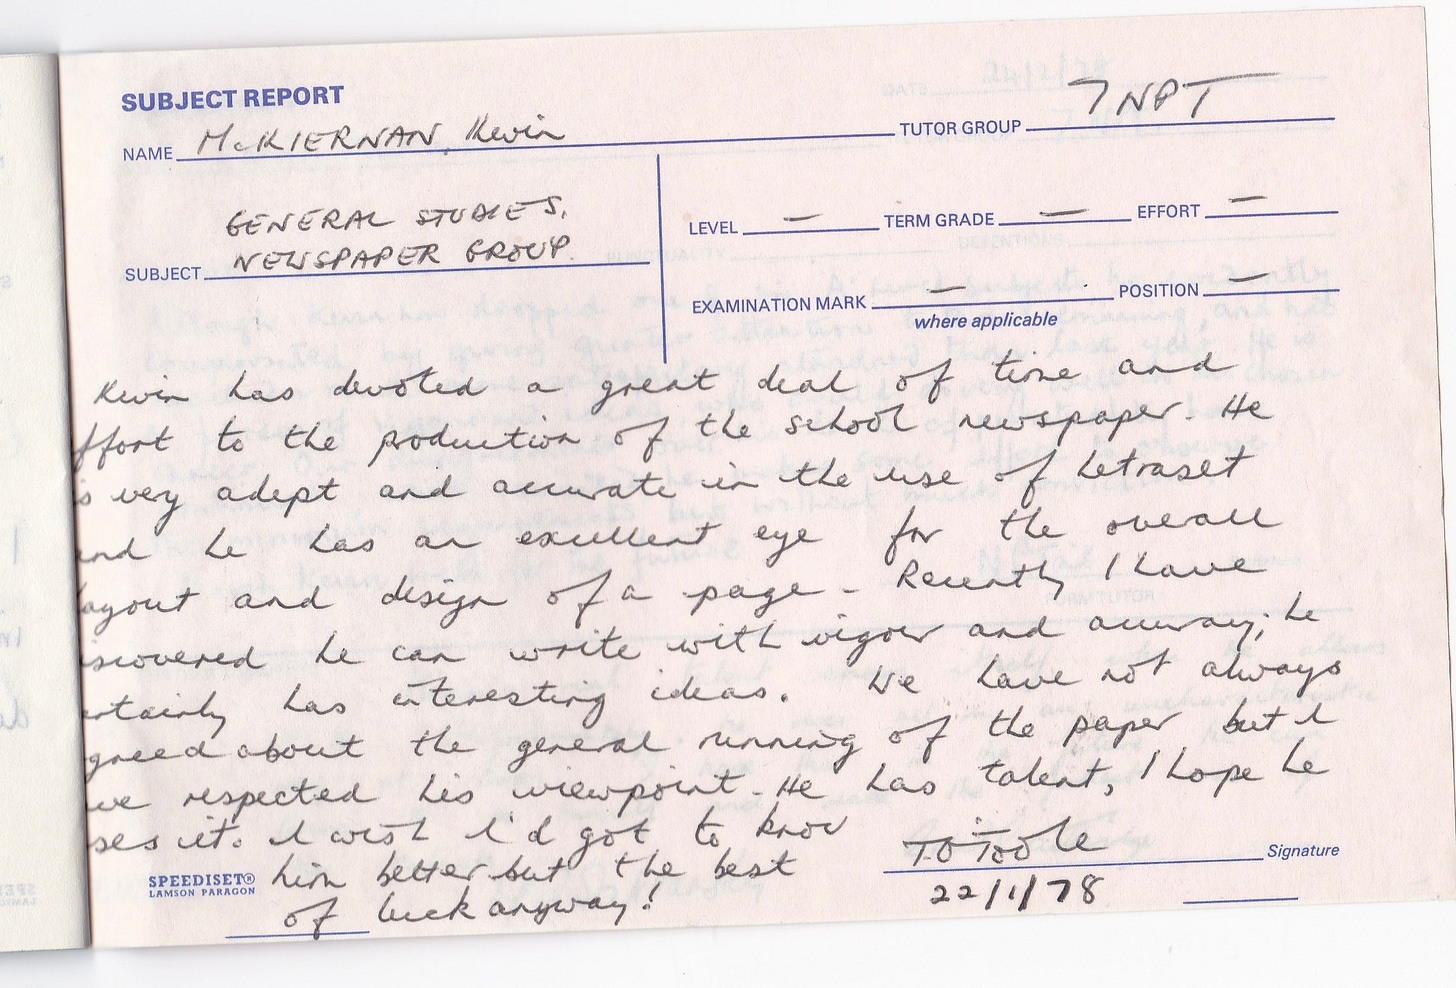 SUBJECT REPORT
NAME McKIERNAN, Kevin TUTOR GROUP 7NPT
GENERAL STUDIES,
SUBJECT NEWSPAPER GROUP.
LEVEL — TERM GRADE — EFFORT —
EXAMINATION MARK — POSITION —
where applicable
Kevin has devoted a great deal of time and
ffort to the production of the school newspaper. He
s very adept and accurate in the use of Letraset
and he has an excellent eye for the overall
ayout and design of a page - Recently I have
iscovered he can write with vigour and accuracy; he
ertainly has interesting ideas. We have not always
greed about the general running of the paper but I
ave respected his viewpoint. He has talent, I hope he
ses it. I wish I'd got to know
him better but the best
of luck anyway!
T O'Toole Signature
22/1/78
SPEEDISET®
LAMSON PARAGON